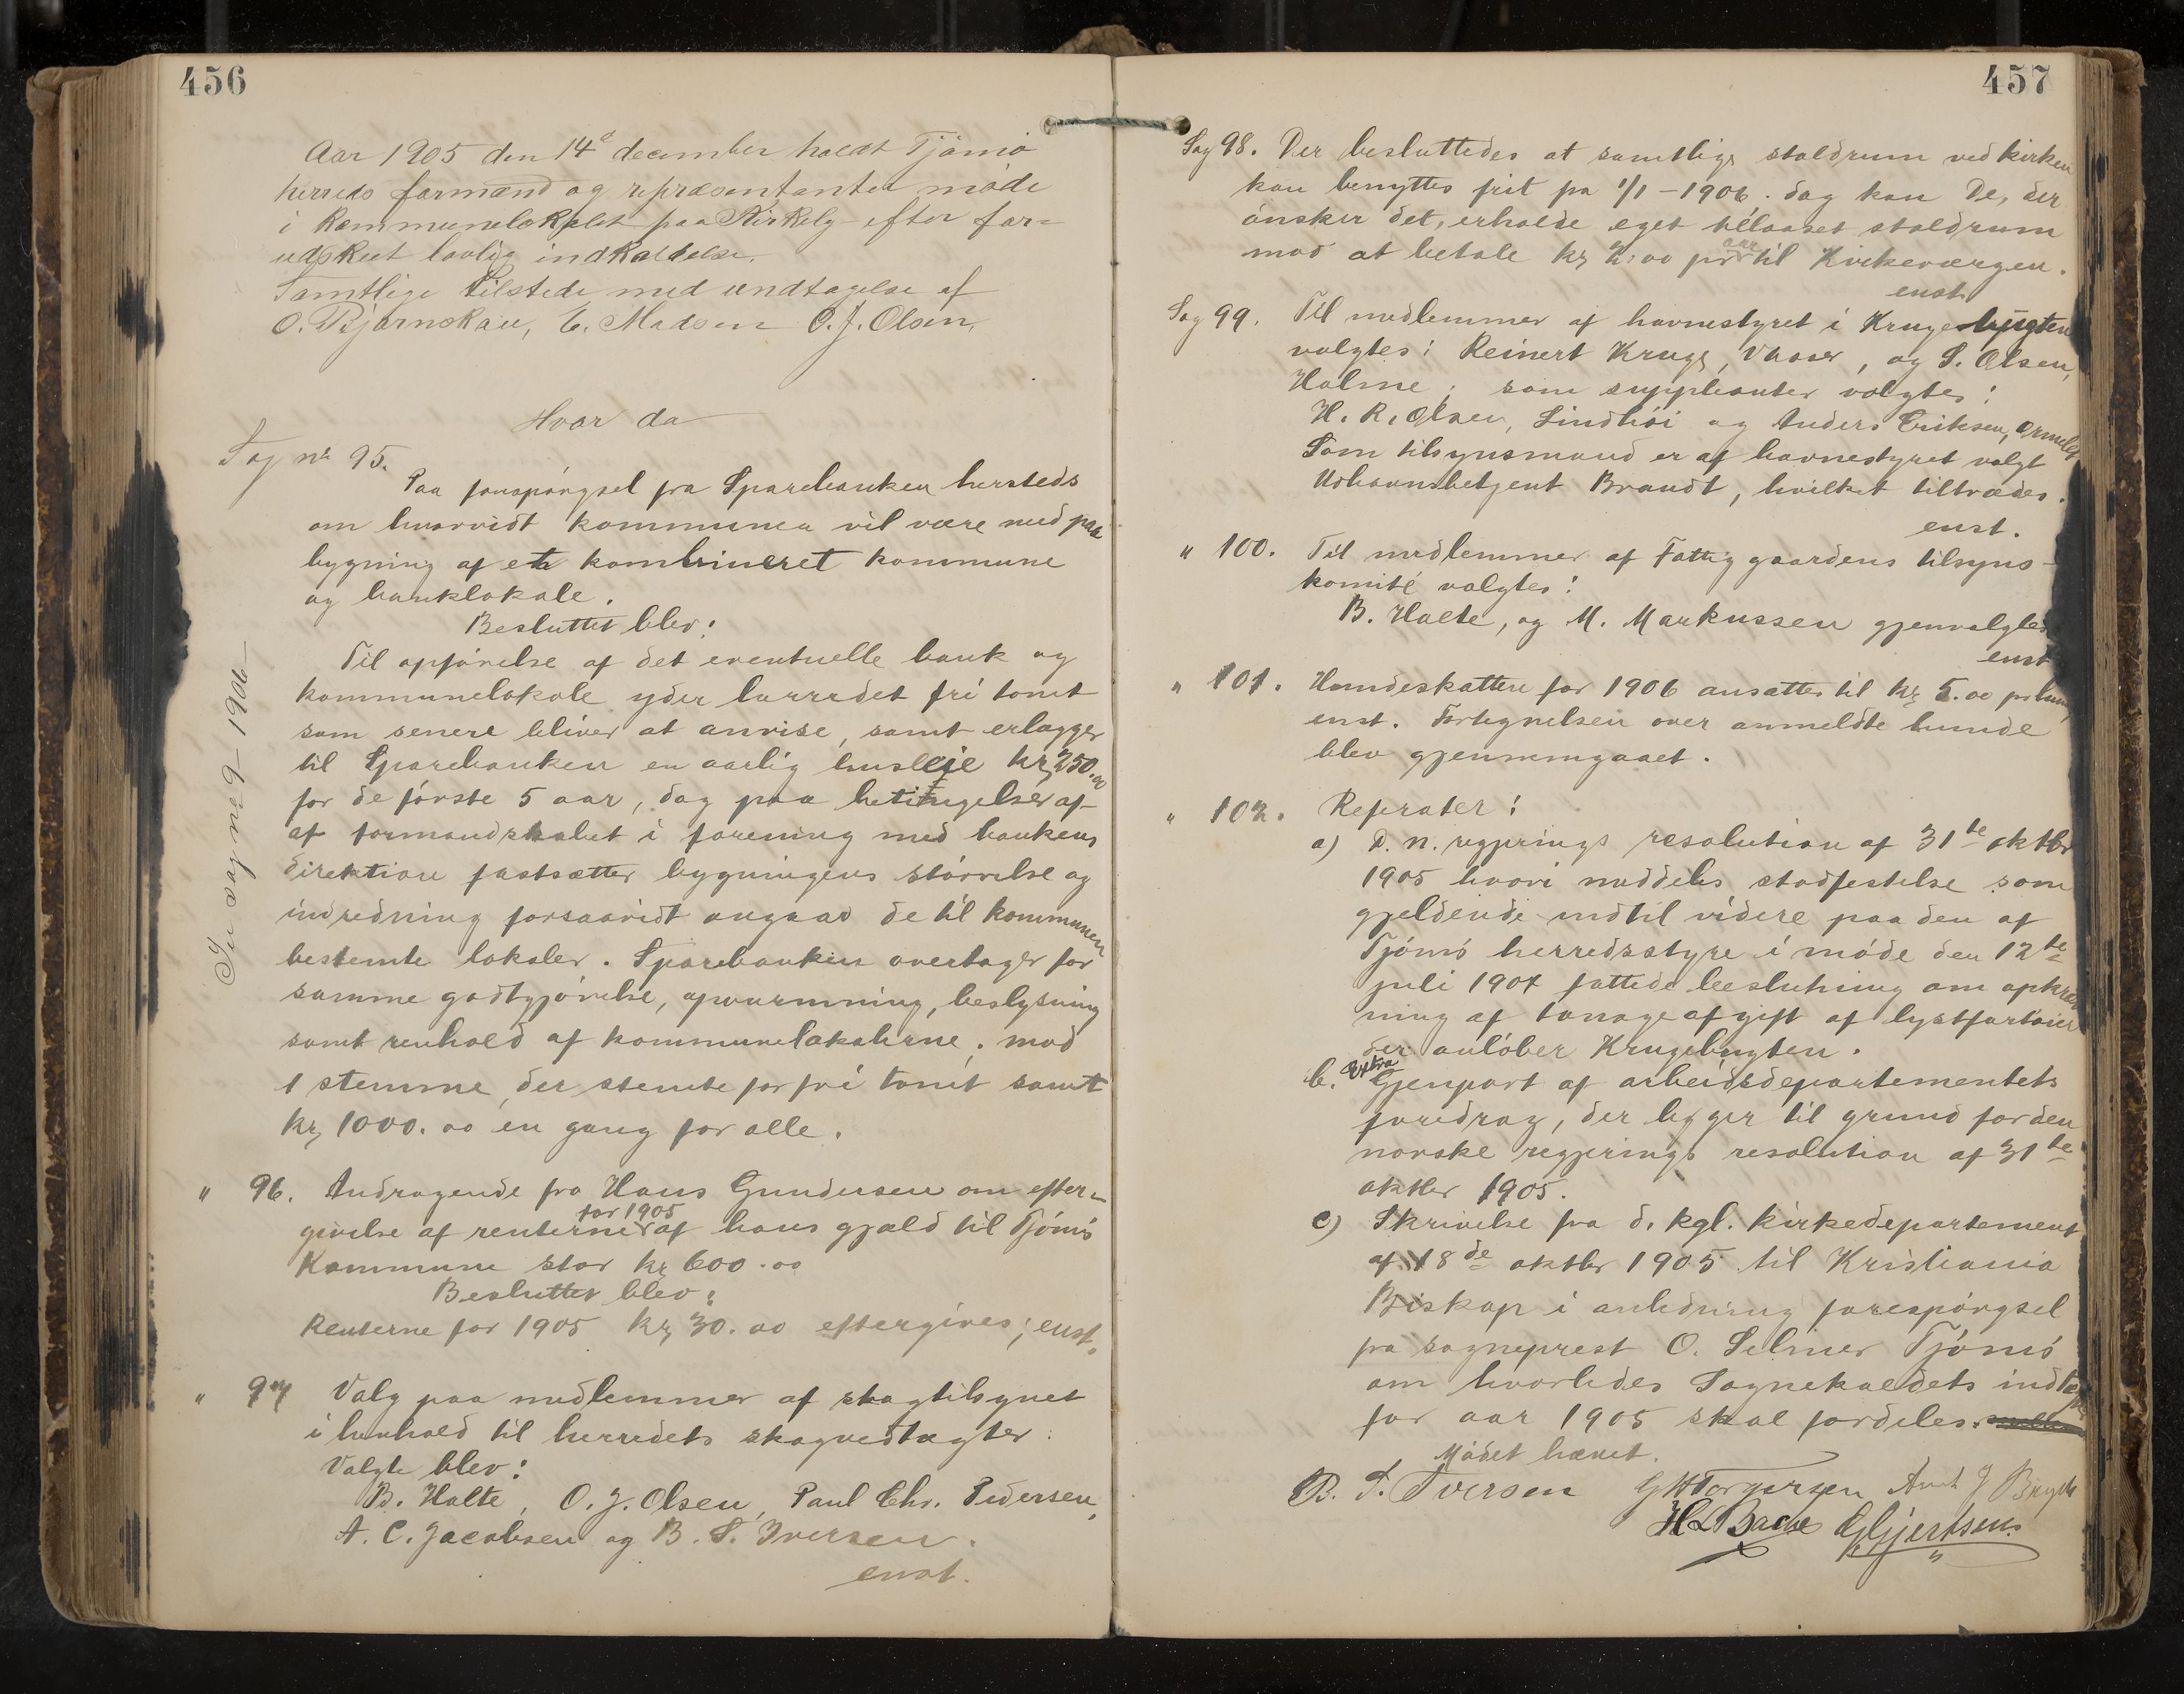 456
Aar 1905 den 14de december holdt Tjömö
herreds formænd og repræsentanter möde
i Kommunelokalet paa Kirkely efter for-
udskeet lovlig indkaldelse.
Samtlige tilstede med undtagelse af
O. Bjørnskau, E. Madsen O. J. Olsen.
Hvor da
Sag no 95.
Paa forespörgsel fra Sparebanken hersteds
om hvorvidt kommunen vil være med paa
bygning af et kombineret kommune
og banklokale.
Besluttet blev:
Til opförelse af det eventuelle bank og
kommunelokale yder herredet fri tomt
som senere bliver at anvise, samt erlægger
til Sparebanken en aarlig husleie kr 250.00
for de förste 5 aar, dog paa betingelse af
af formandskabet i forening med bankens
direktion fastsætter bygningens störrelse og
indredning forsaavidt angaar de til kommunen
bestemte lokaler. Sparebanken overtager for
samme godtgjörelse, opvarmning, beslysning
samt renhold af kommunelokalerne. mod
1 stemme, der stemte for fri tomt samt
kr 1000.00 en gang for alle.
Se sag no 9 - 1906 -
" 96. Andragende fra Hans Gundersen om efter-
givelse af renterne for 1905 af hans gjæld til Tjömö
Kommune stor kr 600.00
Besluttet blev:
Renterne for 1905 kr 30.00 eftergives; enst.
" 97 Valg paa medlemmer af skogtilsynet
i henhold til herredets skogvedtægter.
Valgte blev:
B. Holte, O. J. Olsen, Paul Chr. Pedersen,
A. C. Jacobsen og B. T. Iversen.
enst.
457
Sag 98. Der besluttedes at samtlige staldrum ved kirken
kan benyttes frit fra 1/1 - 1906. dog kan De, der
önsker det, erholde eget tillaaset staldrum
mod at betale kr 2.00 pr aar til Kirkeværgen.
enst.
Sag 99. Til medlemmer af havnestyret i Krugebugten
valgtes: Reinert Kruge, Vasser, og S. Olsen,
Holme; som suppleanter valgtes:
H. R. Olsen, Lindhöi og Anders Eriksen,
Som tilsynsmand er af havnestyret valgt
Udhavnsbetjent Brandt, hvilket tiltrædes.
enst.
" 100. Til medlemmer af Fattiggaardens tilsyns-
komité valgtes:
B. Holte, og M. Markussen gjenvalgtes
enst
" 101. Hundeskatten for 1906 ansattes til kr 5.00 pr hund,
enst. Fortegnelsen over anmeldte hunde
blev gjennemgaaet.
" 102. Referater:
a) D. n. regjerings resolution af 31te oktbr
1905 hvori meddeles stadfestelse som
gjeldende indtil videre paa den af
Tjömö herredsstyre i möde den 12te
juli 1904 fattede beslutning om opkræv
ning af tonageafgift af lystfartöier
der anlöber Krugebugten.
b. Extra Gjenpart af arbeidsdepartementets
foredrag, der ligger til grund for den
norske regjerings resolution af 31te
oktbr 1905.
c) Skrivelse fra d. kgl. kirkedepartement
af 18de oktbr 1905 til Kristiania
Biskop i anledning forespörgsel
fra sogneprest O. Selmer Tjömö
om hvorledes Sognekaldets indtægter
for aar 1905 skal fordeles.
Mödet hævet.
B. T. Iversen G H Torgersen
H L Bache G Gjertsen